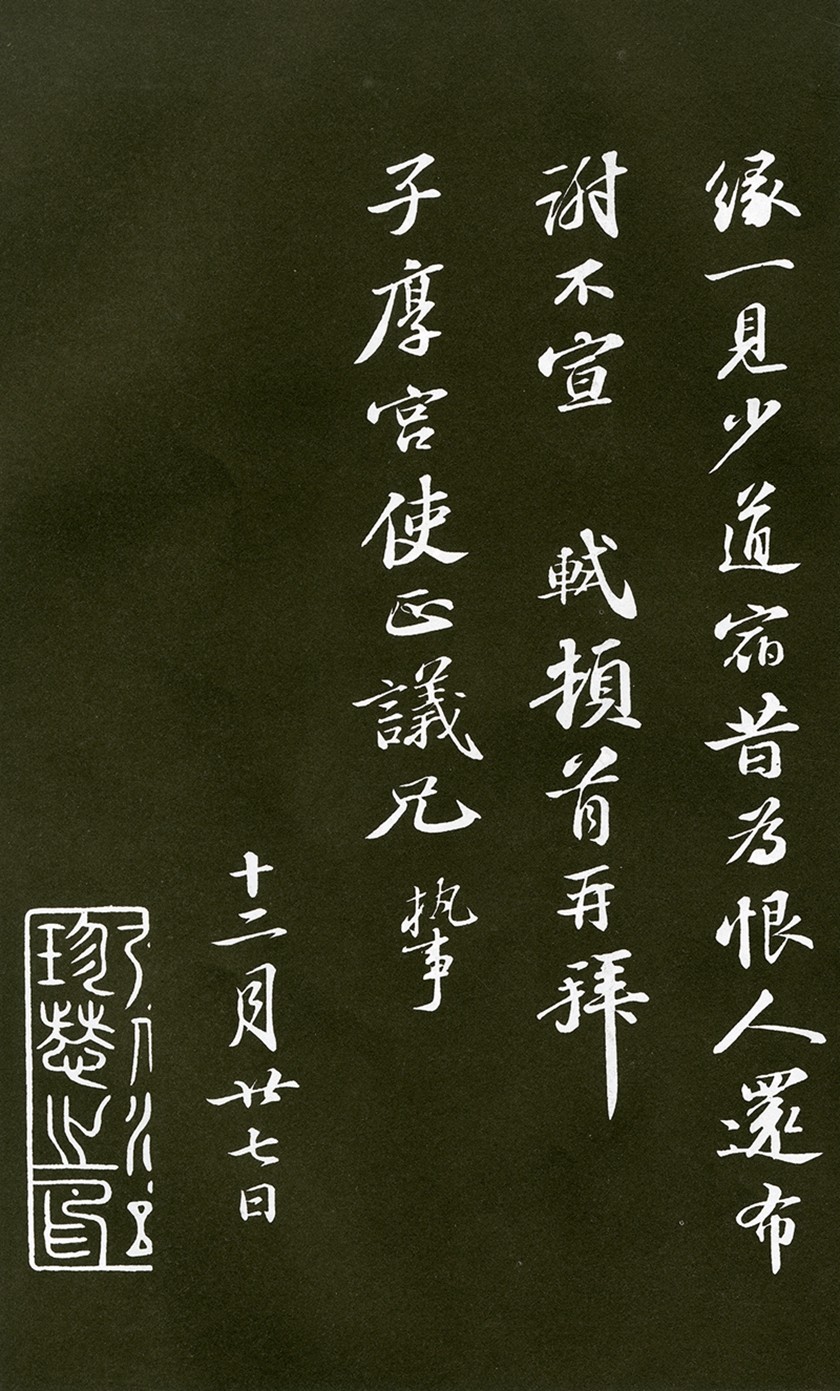 緣一見少道宿昔為恨人還布
謝不宣 軾頓首再拜
子厚宮使正議兄 執事
十二月廿七日